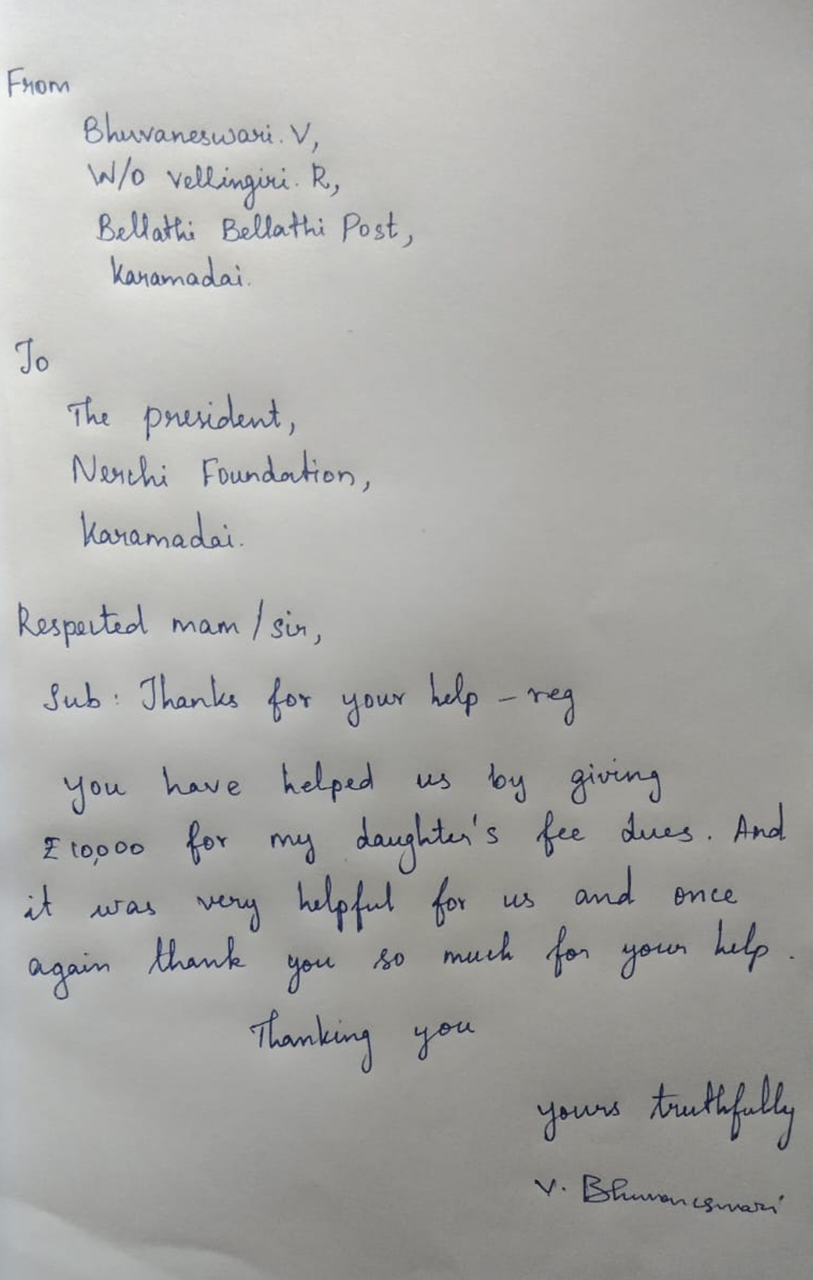 From
Bhuvaneswari. V,
W/o Vellingiri. R,
Bellathi Bellathi Post,
Karamadai.
To
The president,
Nerchi Foundation,
Karamadai.
Respected mam / sir,
Sub : Thanks for your help – reg
You have helped us by giving
₹ 10,000 for my daughter's fee dues. And
it was very helpful for us and once
again thank you so much for your help.
Thanking you
yours truthfully
V. Bhuvaneswari